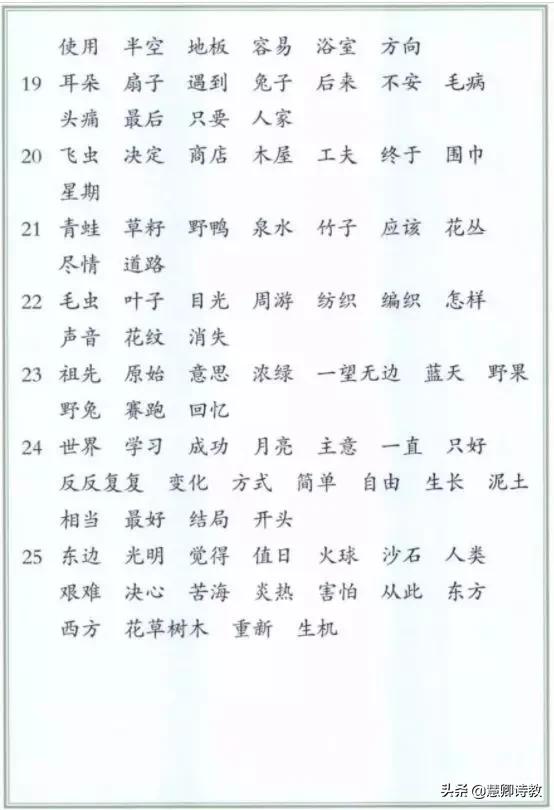 使用 半空 地板 容易 浴室 方向
19 耳朵 扇子 遇到 兔子 后来 不安 毛病
头痛 最后 只要 人家
20 飞虫 决定 商店 木屋 工夫 终于 围巾
星期
21 青蛙 草籽 野鸭 泉水 竹子 应该 花丛
尽情 道路
22 毛虫 叶子 目光 周游 纺织 编织 怎样
声音 花纹 消失
23 祖先 原始 意思 浓绿 一望无边 蓝天 野果
野兔 赛跑 回忆
24 世界 学习 成功 月亮 主意 一直 只好
反反复复 变化 方式 简单 自由 生长 泥土
相当 最好 结局 开头
25 东边 光明 觉得 值日 火球 沙石 人类
艰难 决心 苦海 炎热 害怕 从此 东方
西方 花草树木 重新 生机
头条 @慧卿诗教